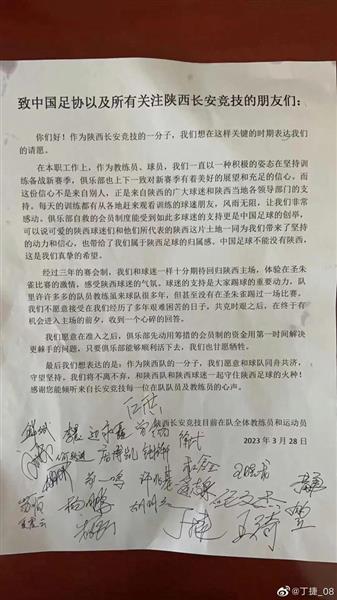 致中国足协以及所有关注陕西长安竞技的朋友们：
你们好！作为陕西长安竞技的一分子，我们想在这样关键的时期表达我们
的请愿。
在本职工作上，作为教练员、球员，我们一直以一种积极的姿态在坚持训
练备战新赛季，俱乐部也上下一致对新赛季有着美好的展望和充足的信心。而
这份信心不是来自别人，正是来自陕西的广大球迷和陕西当地各领导部门的支
持。每天的训练都有从各地赶来观看训练的球迷朋友，风雨无阻，让我们非常
感动。俱乐部自救的会员制度能受到如此多球迷的支持更是中国足球的创举，
可以说可爱的陕西球迷们和他们所代表的陕西这片土地一同为我们带来了坚持
的动力和信心，也带给了我们属于陕西足球的归属感。中国足球不能没有陕西，
这是我们真挚的希望。
经过三年的赛会制，我们和球迷一样十分期待回归陕西主场，体验在圣朱
雀比赛的激情，感受陕西球迷的气氛。球迷的支持是大家踢球的重要动力，队
里许许多多的队员教练虽来球队很多年，但甚至没有在圣朱雀踢过一场比赛。
我们不愿意接受在我们经历了多年艰难困苦的日子，共克时艰之后，在终于有
机会进入主场的前夕，收到一个心碎的回答。
我们愿意在准入之后，俱乐部先动用筹措的会员制的资金用第一时间解决
更棘手的问题，只要俱乐部能够顺利活下去，我们也甘愿牺牲。
最后我们想表达的是：作为陕西队的一分子，我们愿意和球队同舟共济，
守望坚持。我们将不离不弃，和陕西队和陕西球迷一起守住陕西足球的火种！
感谢您能倾听来自长安竞技每一位在队队员及教练员的心声。
陕西长安竞技目前在队全体教练员和运动员
2023 年 3 月 28 日
丁捷
@丁捷_08